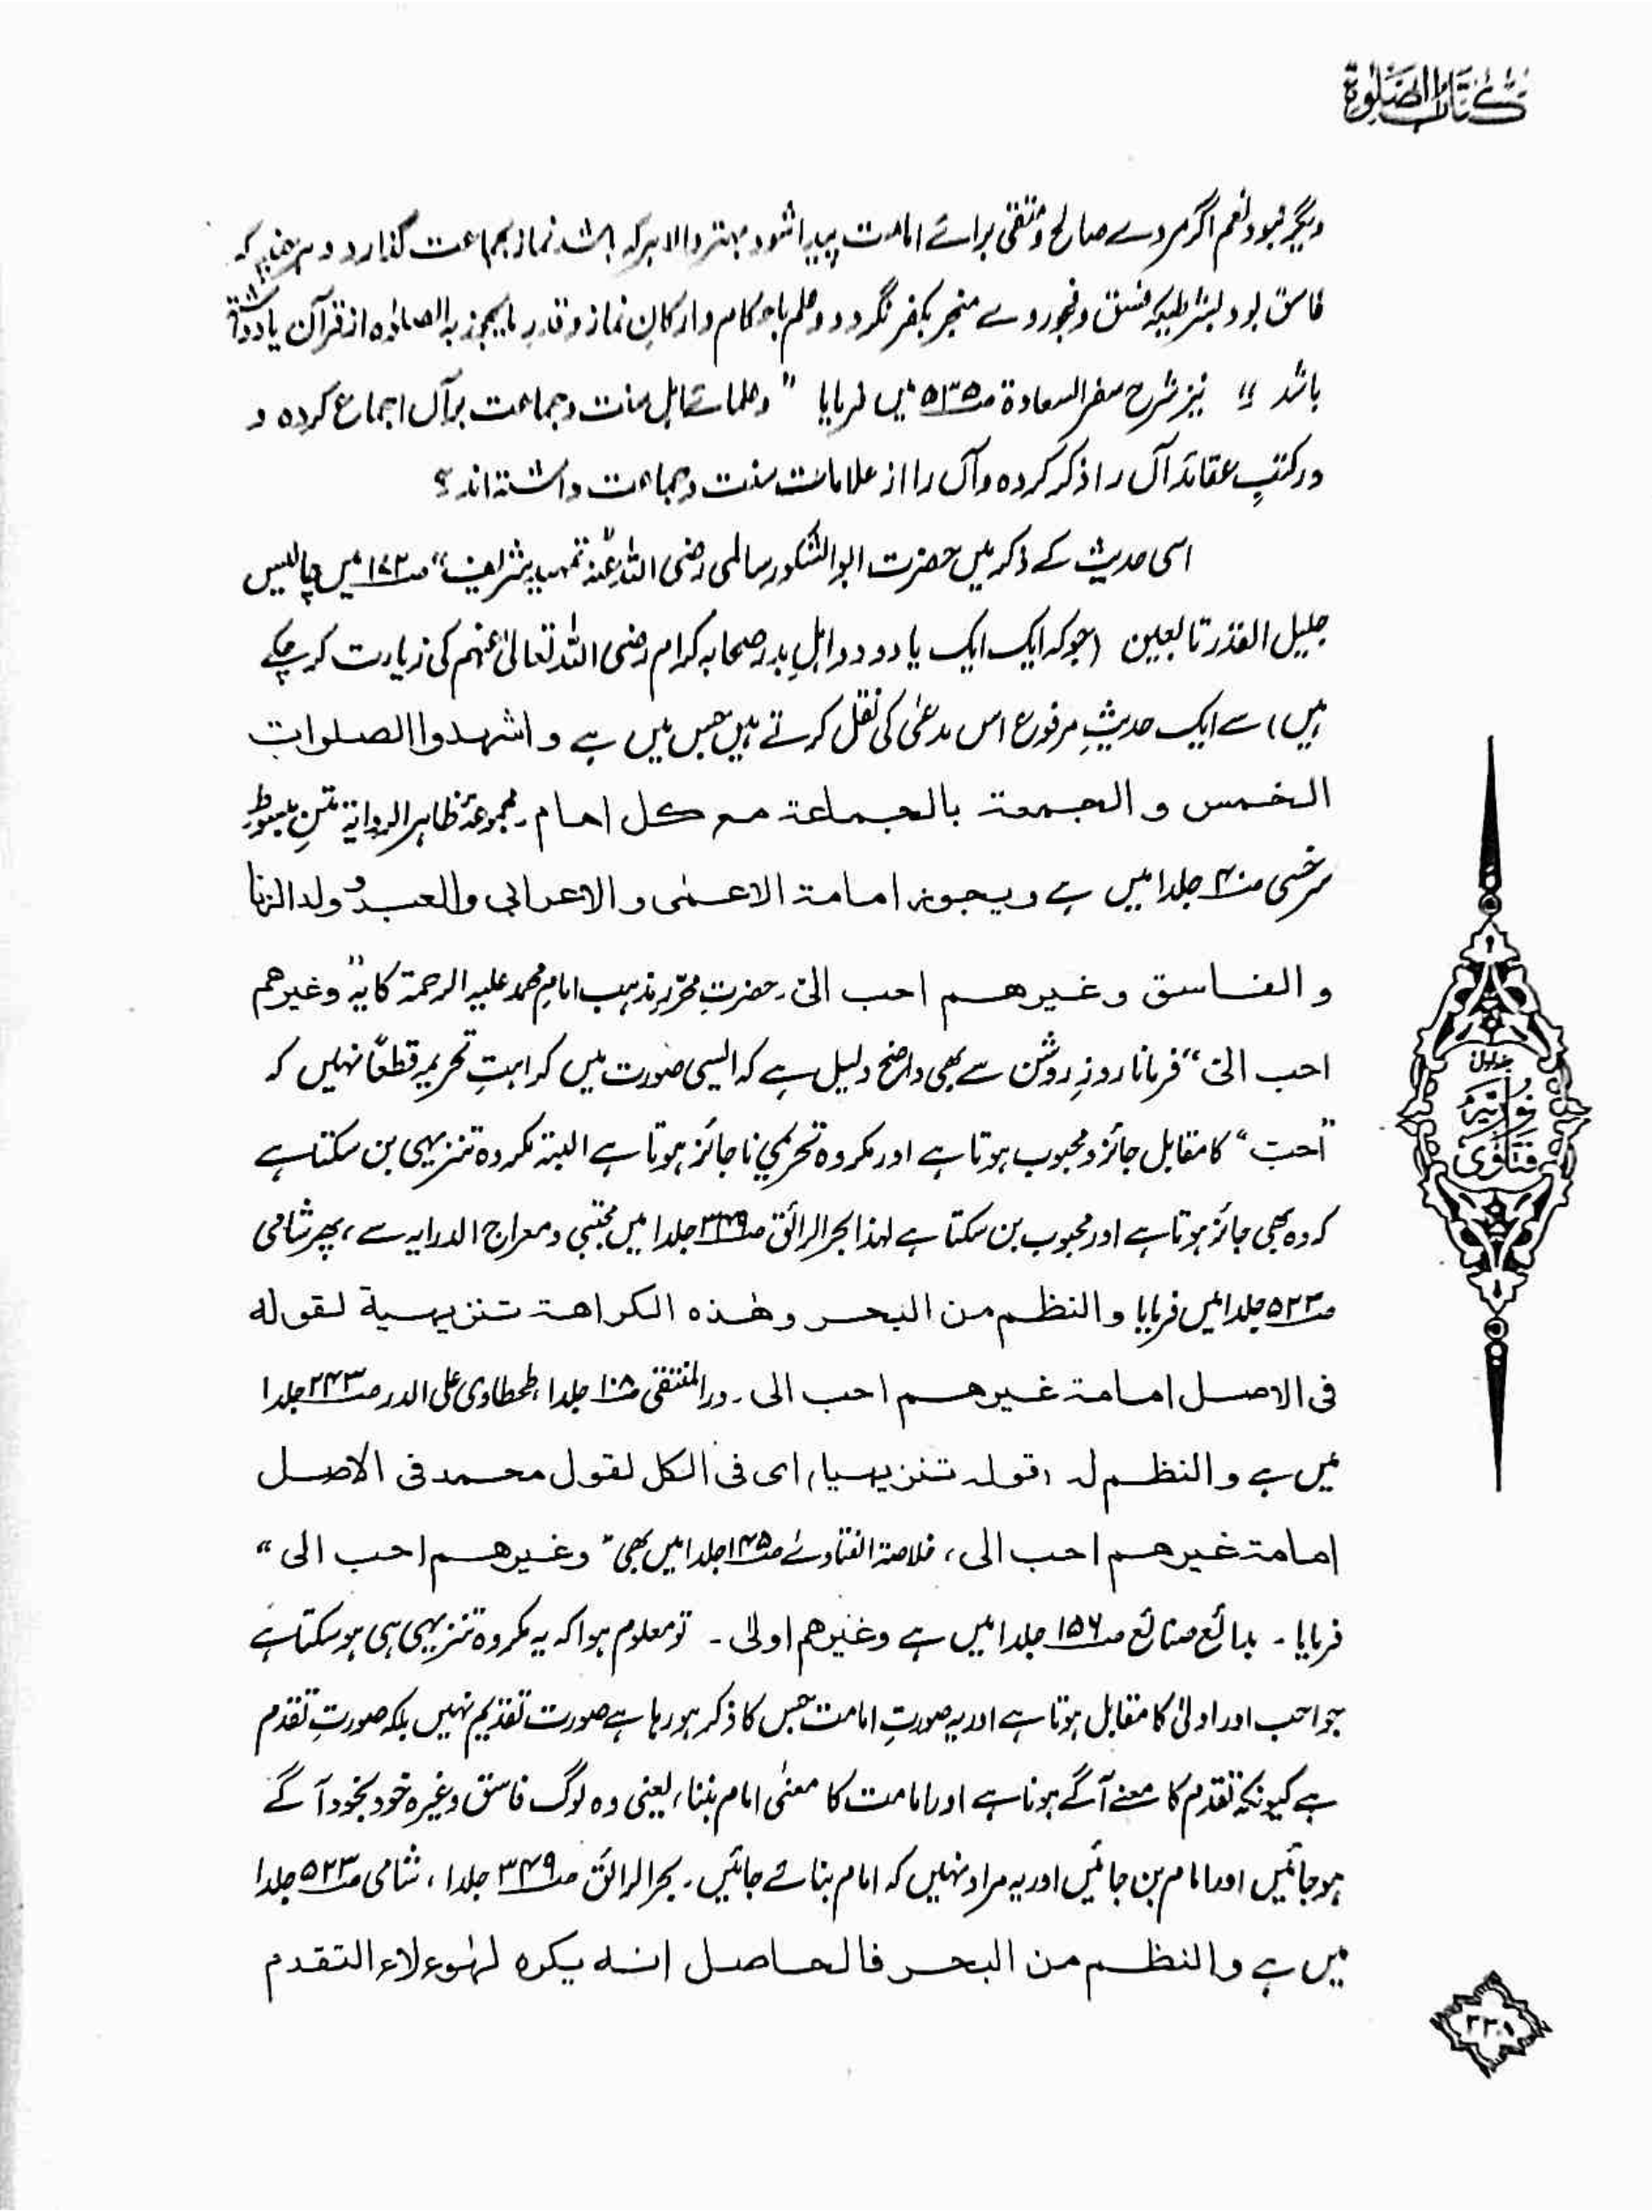 کتاب الصلوٰۃ
دیگر نبود نعم اگر مردے صالح و متقی برائے امامت پیدا شود بہتر والا ہرکہ باشد نماز بجماعت گذارد و ہرچند کہ
فاسق بود بشرطیکہ فسق و فجور وے منجر بکفر نگردد و علم باحکام و ارکان نماز و قدر مایجوز بہ الصلوٰۃ از قرآن یاد داشتہ
باشد ״ نیز شرح سفر السعادۃ صـ۵۳۵ میں فرمایا " وعلمائے اہل سنت وجماعت برآں اجماع کردہ و
درکتبِ عقائد آں را ذکر کردہ وآں را از علامات سنت وجماعت داشتہ اند ؟
اسی حدیث کے ذکر میں حضرت ابوالشکور سالمی رضی اللہ عنہ تمہید شریف" صـ۱۷۳ میں چالیس
جلیل القدر تابعین (جوکہ ایک ایک یا دو دو اہلِ بدر صحابہ کرام رضی اللہ تعالیٰ عنہم کی زیارت کرچکے
ہیں) سے ایک حدیثِ مرفوع اس مدعیٰ کی نقل کرتے ہیں جس میں ہے و اشہدوا الصلوات
الخمس و الجمعۃ بالجماعۃ مع کل امام۔ مجموعۂ ظاہر الروایۃ متنِ مبسوط
سرخسی صـ۴۰ جلد۱ میں ہے ویجوز امامۃ الاعمٰی و الاعرابی والعبد و ولد الزنا
و الفاسق وغیرھم احب الیّ۔ حضرتِ محرّرِ مذہب امام محمد علیہ الرحمۃ کا یہ "وغیرھم
احب الیّ" فرمانا روزِ روشن سے بھی واضح دلیل ہے کہ ایسی صورت میں کراہتِ تحریم قطعًا نہیں کہ
"احبّ" کا مقابل جائز و محبوب ہوتا ہے اور مکروہ تحریمی ناجائز ہوتا ہے البتہ مکروہ تنزیہی بن سکتا ہے
کہ وہ بھی جائز ہوتا ہے اور محبوب بن سکتا ہے لہذا بحر الرائق صـ۳۴۹ جلد۱ میں مجتبیٰ و معراج الدرایہ سے ، پھر شامی
صـ۵۲۳ جلد۱ میں فرمایا والنظم من البحر وھٰذہ الکراھۃ تنزیہیۃ لقولہ
فی الاصل امامۃ غیرھم احب الی۔ در المنتقی صـ۱۰۸ جلد۱ ، طحطاوی علی الدر صـ۲۴۳ جلد۱
میں ہے والنظم لہ (قولہ تنزیہیا) ای فی الکل لقول محمد فی الاصل
امامۃ غیرھم احب الی ، خلاصۃ الفتاوےٰ صـ۱۴۵ جلد۱ میں بھی " وغیرھم احب الی "
فرمایا ۔ بدائع صنائع صـ۱۵۶ جلد۱ میں ہے وغیرھم اولیٰ ۔ تو معلوم ہوا کہ یہ مکروہ تنزیہی ہی ہوسکتا ہے
جو احب اور اولیٰ کا مقابل ہوتا ہے اور یہ صورتِ امامت جس کا ذکر ہو رہا ہے صورت تقدیم نہیں بلکہ صورتِ تقدم
ہے کیونکہ تقدّم کا معنے آگے ہونا ہے اور امامت کا معنیٰ امام بننا ، یعنی وہ لوگ فاسق وغیرہ خود بخود آگے
ہوجائیں اور امام بن جائیں اور یہ مراد نہیں کہ امام بنائے جائیں ۔ بحر الرائق صـ۳۴۹ جلد۱ ، شامی صـ۵۲۳ جلد۱
میں ہے والنظم من البحر فالحاصل انہ یکرہ لھٰؤلاء التقدم
جلد اول
فتاوی نوریہ